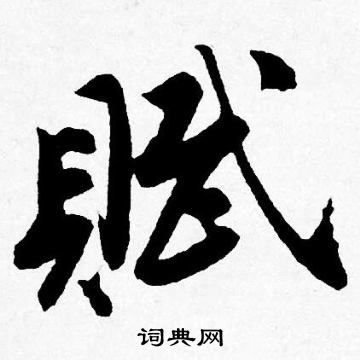 賦
词典网